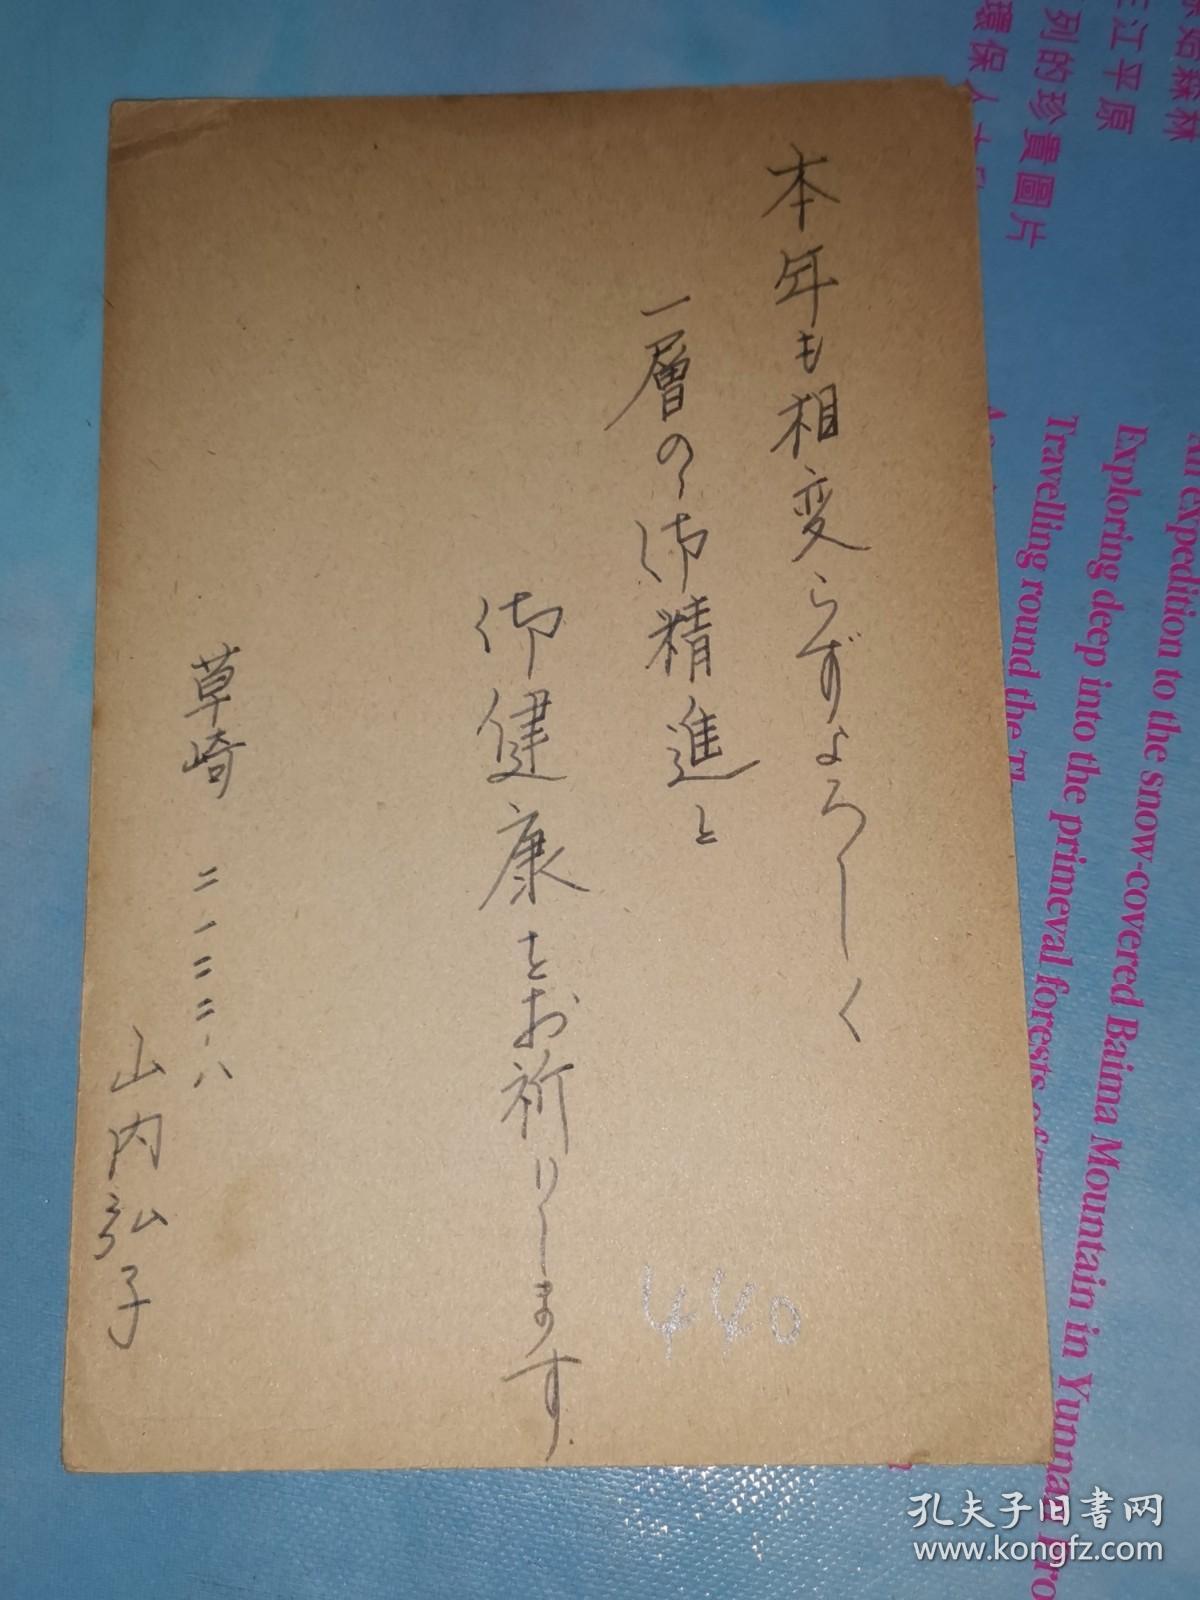 本年も相変らずよろしく
一層の御精進と
御健康をお祈りします
草崎 二ー二二ー八
山内弘子
440
原始森林
三江平原
列的珍貴圖片
環保人
An expedition to the snow-covered Baima Mountain in Yunnan Pro
Exploring deep into the primeval forests of
Travelling round the Th
孔夫子旧書网
www.kongfz.com